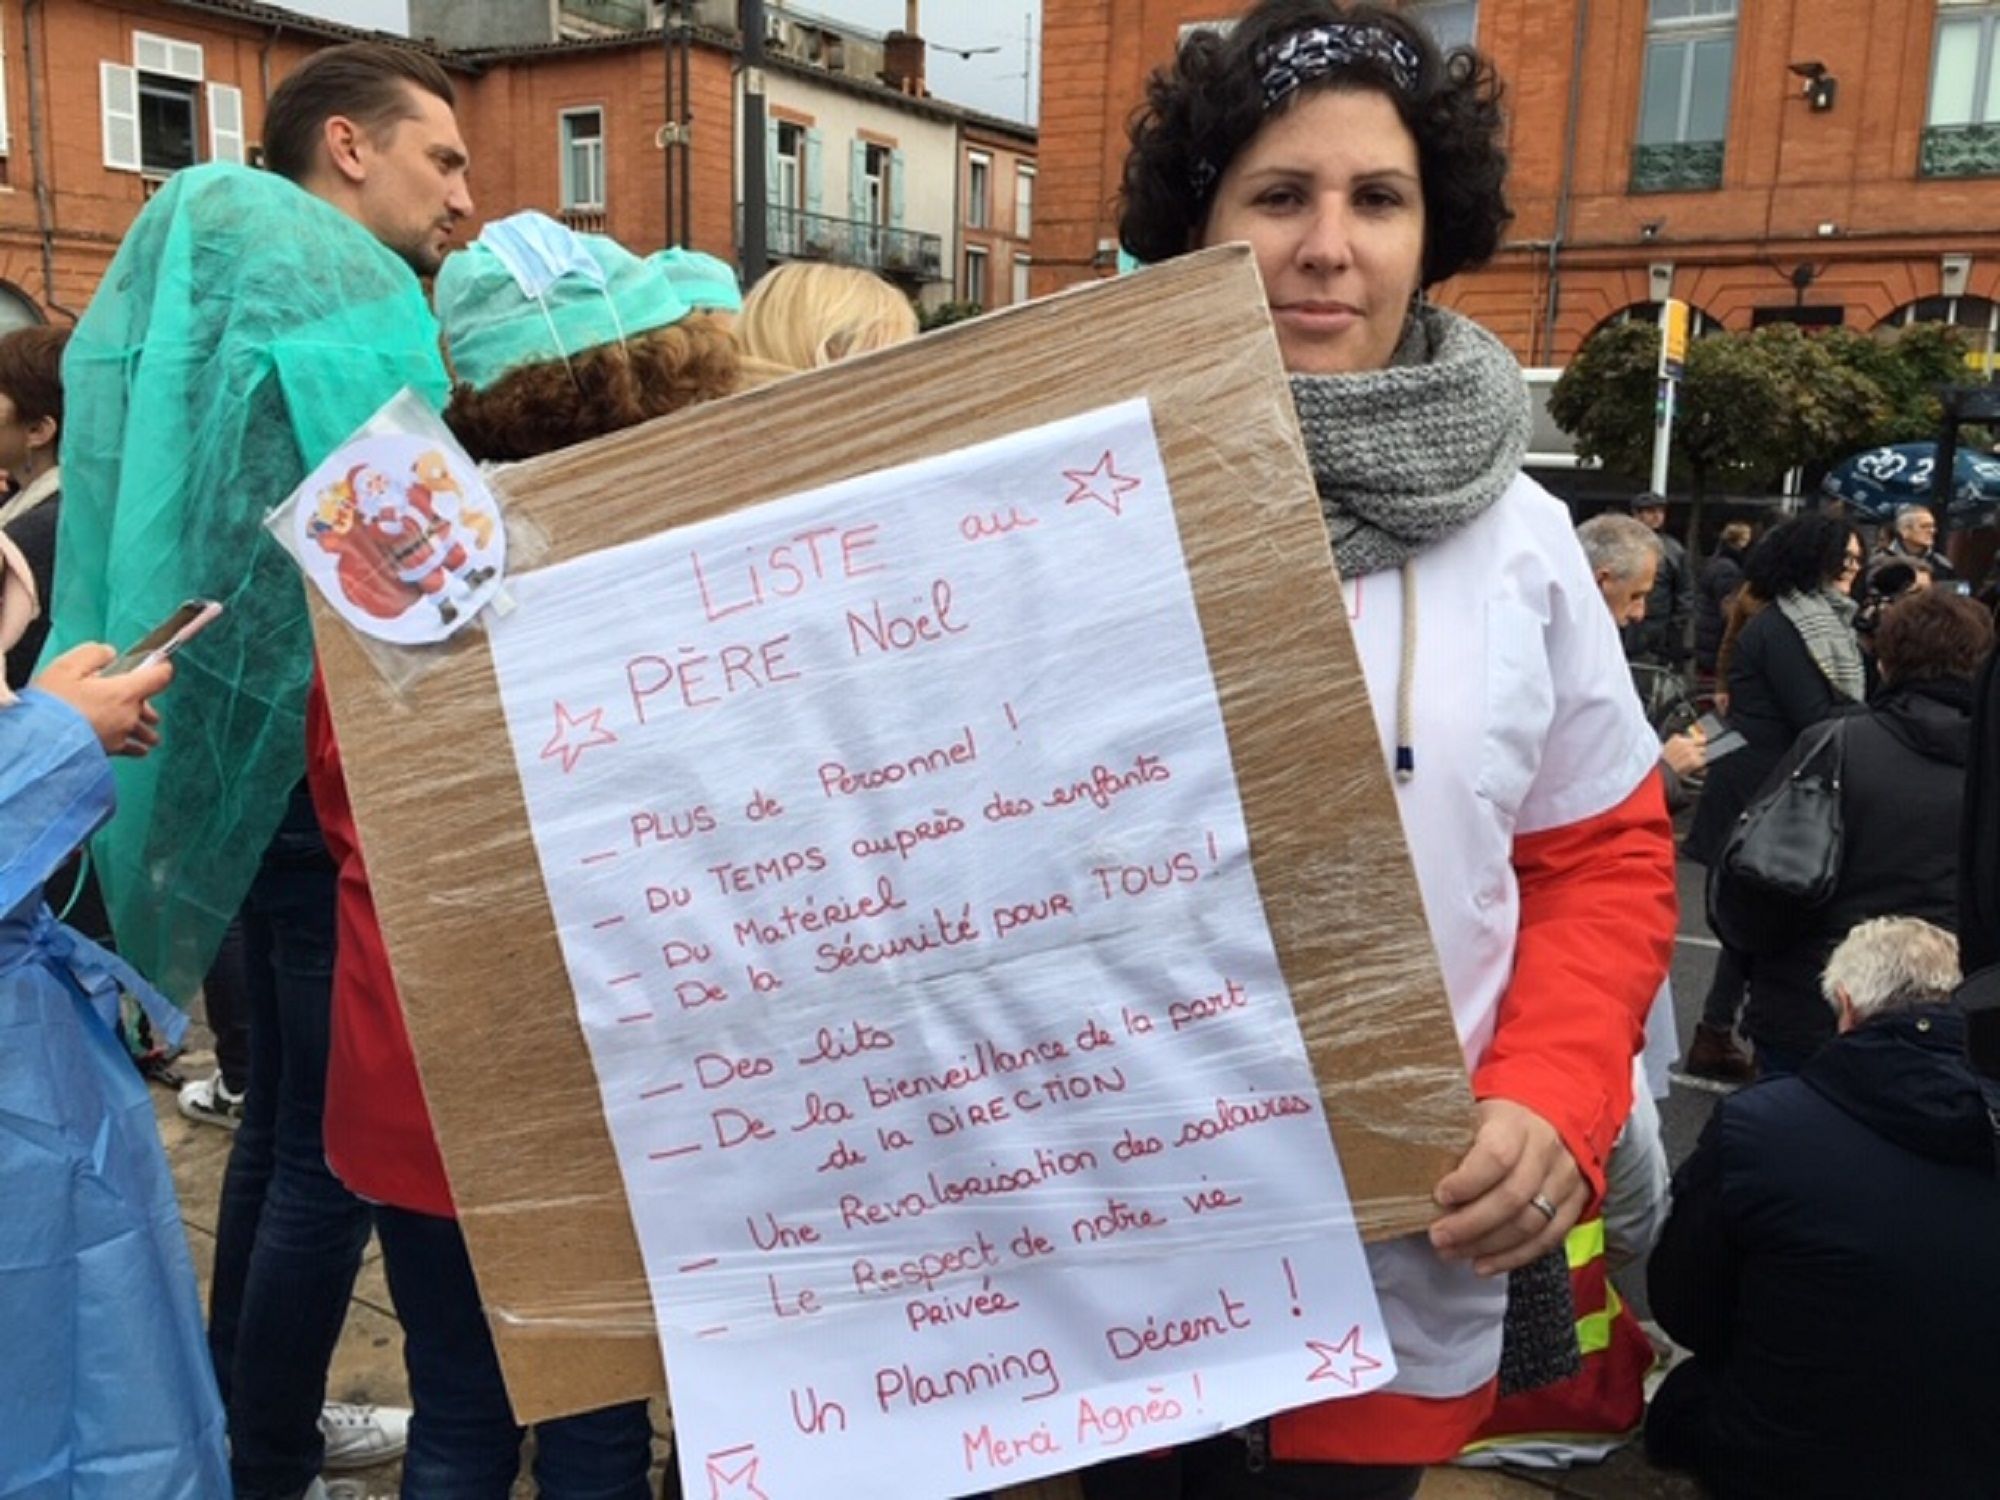 LiSTE au
PÈRE Noël
_ PLUS de Personnel !
_ DU TEMPS auprès des enfants
_ DU Matériel
_ De la Sécurité pour TOUS !
_ Des lits
_ De la bienveillance de la part
de la DIRECTION
_ Une Revalorisation des salaires
_ Le Respect de notre vie
Privée
_ Un Planning Décent !
Merci Agnès !